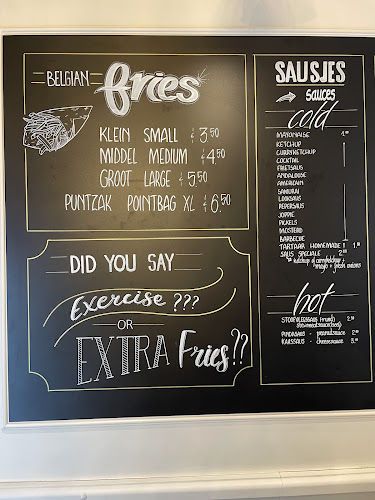 BELGIAN fries
KLEIN SMALL € 3.50
MIDDEL MEDIUM € 4.50
GROOT LARGE € 5.50
PUNTZAK POINTBAG XL € 6.50
DID YOU SAY
Exercise ???
OR
EXTRA Fries??
SAUSJES
→ sauces
cold
MAYONAISE
KETCHUP
CURRYKETCHUP
COCKTAIL
FRIETSAUS
ANDALOUSE
AMERICAIN
SAMURAI
LOOKSAUS
PEPERSAUS
JOPPIE
PICKELS
MOSTERD
BARBECUE
TARTAAR HOMEMADE !
SAUS SPECIALE
mayo + fresh onions
hot
STOOFVLEESSAUS
PINDASAUS - peanutsauce
KAASSAUS - cheesesauce